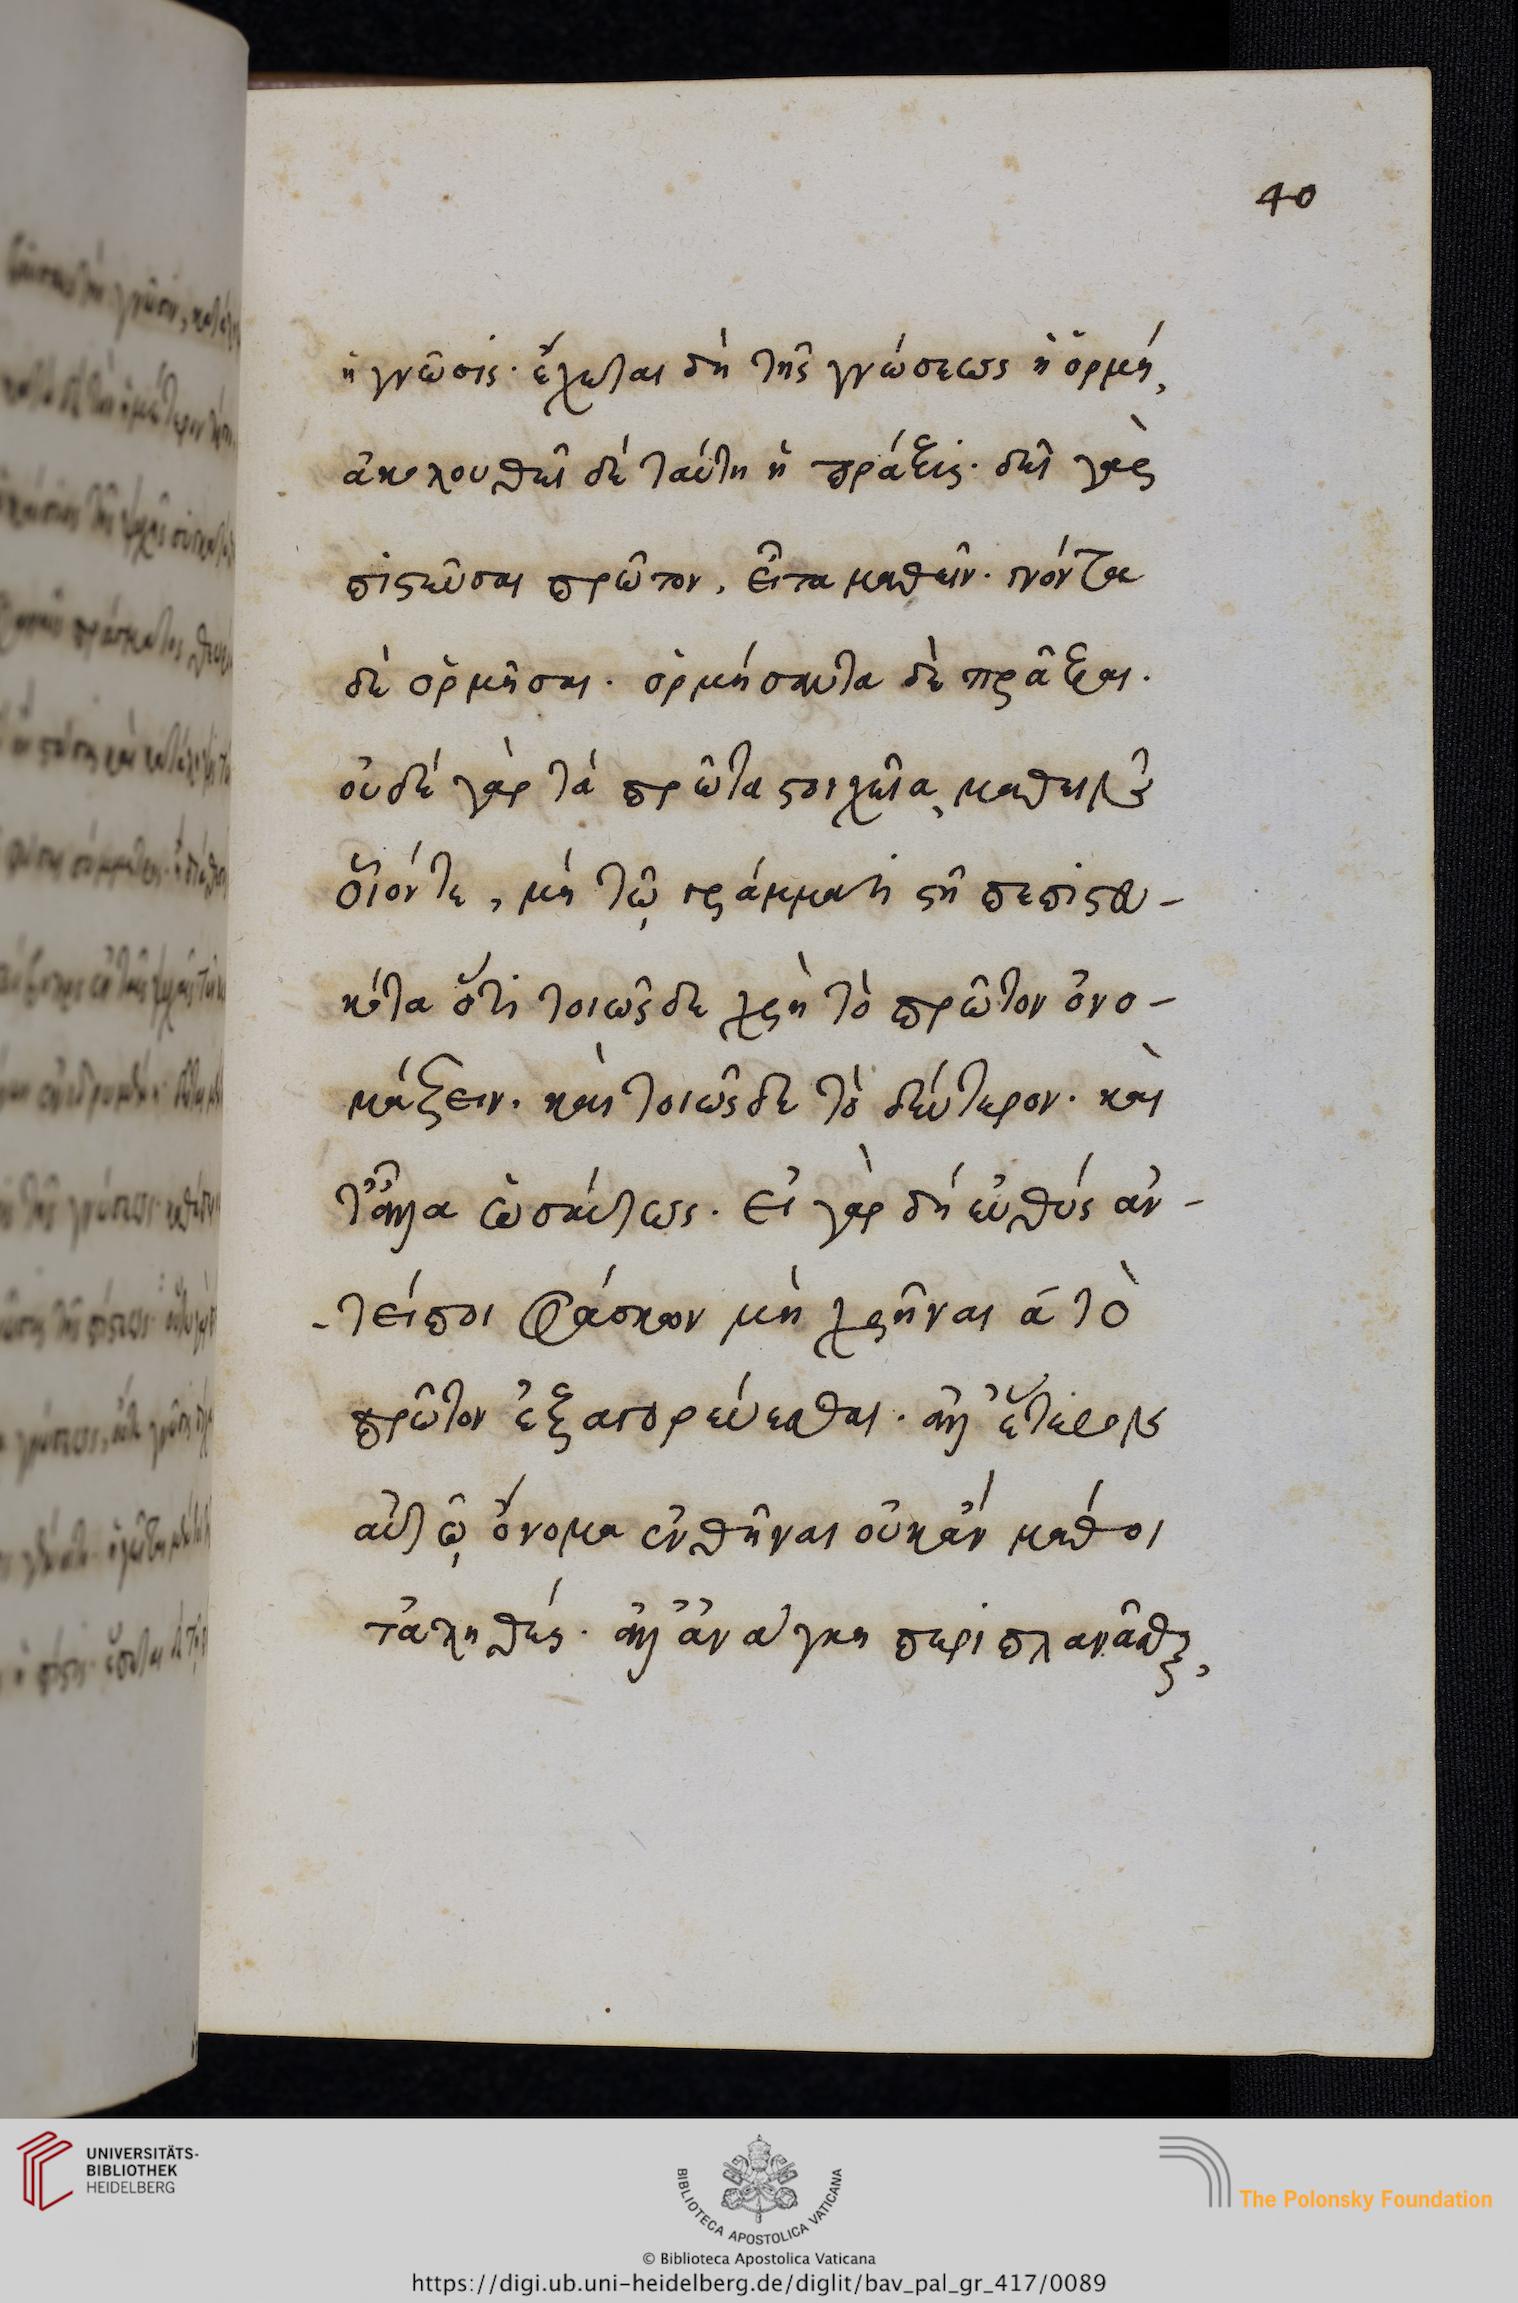 40
ἡ γνῶσις· ἔχεται δὴ τῆς γνώσεως ἡ ὁρμή,
ἀκολουθεῖ δέ ταύτη ἡ πράξις· δεῖ γὰρ
πιστεῦσαι πρῶτον, εἶτα μαθεῖν· γνόντα
δὲ ὁρμῆσαι· ὁρμήσαντα δὲ πρᾶξαι·
οὐδέ γὰρ τὰ πρῶτα στοιχεῖα, μαθεῖν
οἷόντε, μή τῷ γράμματιστῆ πεπιστευ-
κότα ὅτι τοιῶςδε χρὴ τὸ πρῶτον ὀνο-
μάζειν· καὶ τοιῶςδε τὸ δεύτερον· καὶ
τἆλλα ὡσαύτως· εἰ γὰρ δή εὐθύς ἀν-
-τείποι φάσκων μὴ χρῆναι ἀ τὸ
πρῶτον ἐξαγορεύεσθαι· ἀλλ' ἕτερον
αὐτῷ ὄνομα ἐνθῆναι οὐκ ἄν μάθοι
τἀληθές· ἀλλ' ἀνάγκη περιπλανᾶσθαι,
UNIVERSITÄTS-
BIBLIOTHEK
HEIDELBERG
BIBLIOTECA APOSTOLICA VATICANA
© Biblioteca Apostolica Vaticana
The Polonsky Foundation
https://digi.ub.uni-heidelberg.de/diglit/bav_pal_gr_417/0089